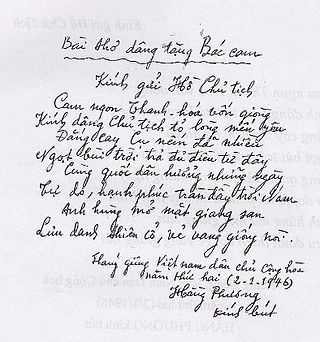 Bài thơ dâng tặng Bác cam
Kính gửi Hồ Chủ tịch
Cam ngon Thanh-hóa vốn giòng
Kính dâng Chủ tịch tỏ lòng mến yêu
Đắng cay, Cụ nếm đã nhiều
Ngọt bùi trời trả đủ điều từ đây
Cùng quốc dân hưởng những ngày
Tự do, hạnh phúc tràn đầy trời Nam
Anh hùng mở mặt giang san
Lưu danh thiên cổ, vẻ vang giống nòi.
Việt nam dân chủ Cộng hòa
năm thứ hai (2-1-1946)
Hằng Phương
kính bút